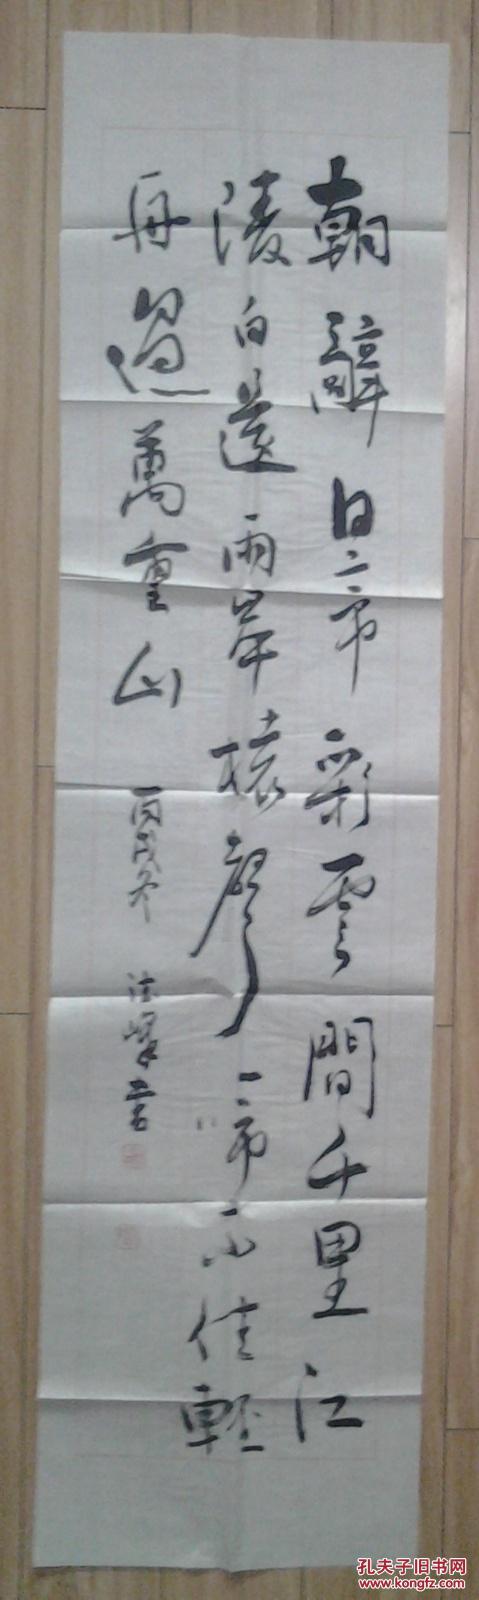 朝辭白帝彩雲間千里江
陵白還兩岸猿聲啼不住輕
舟過萬重山 丙戌冬 書
孔夫子旧书网
kongfz.com